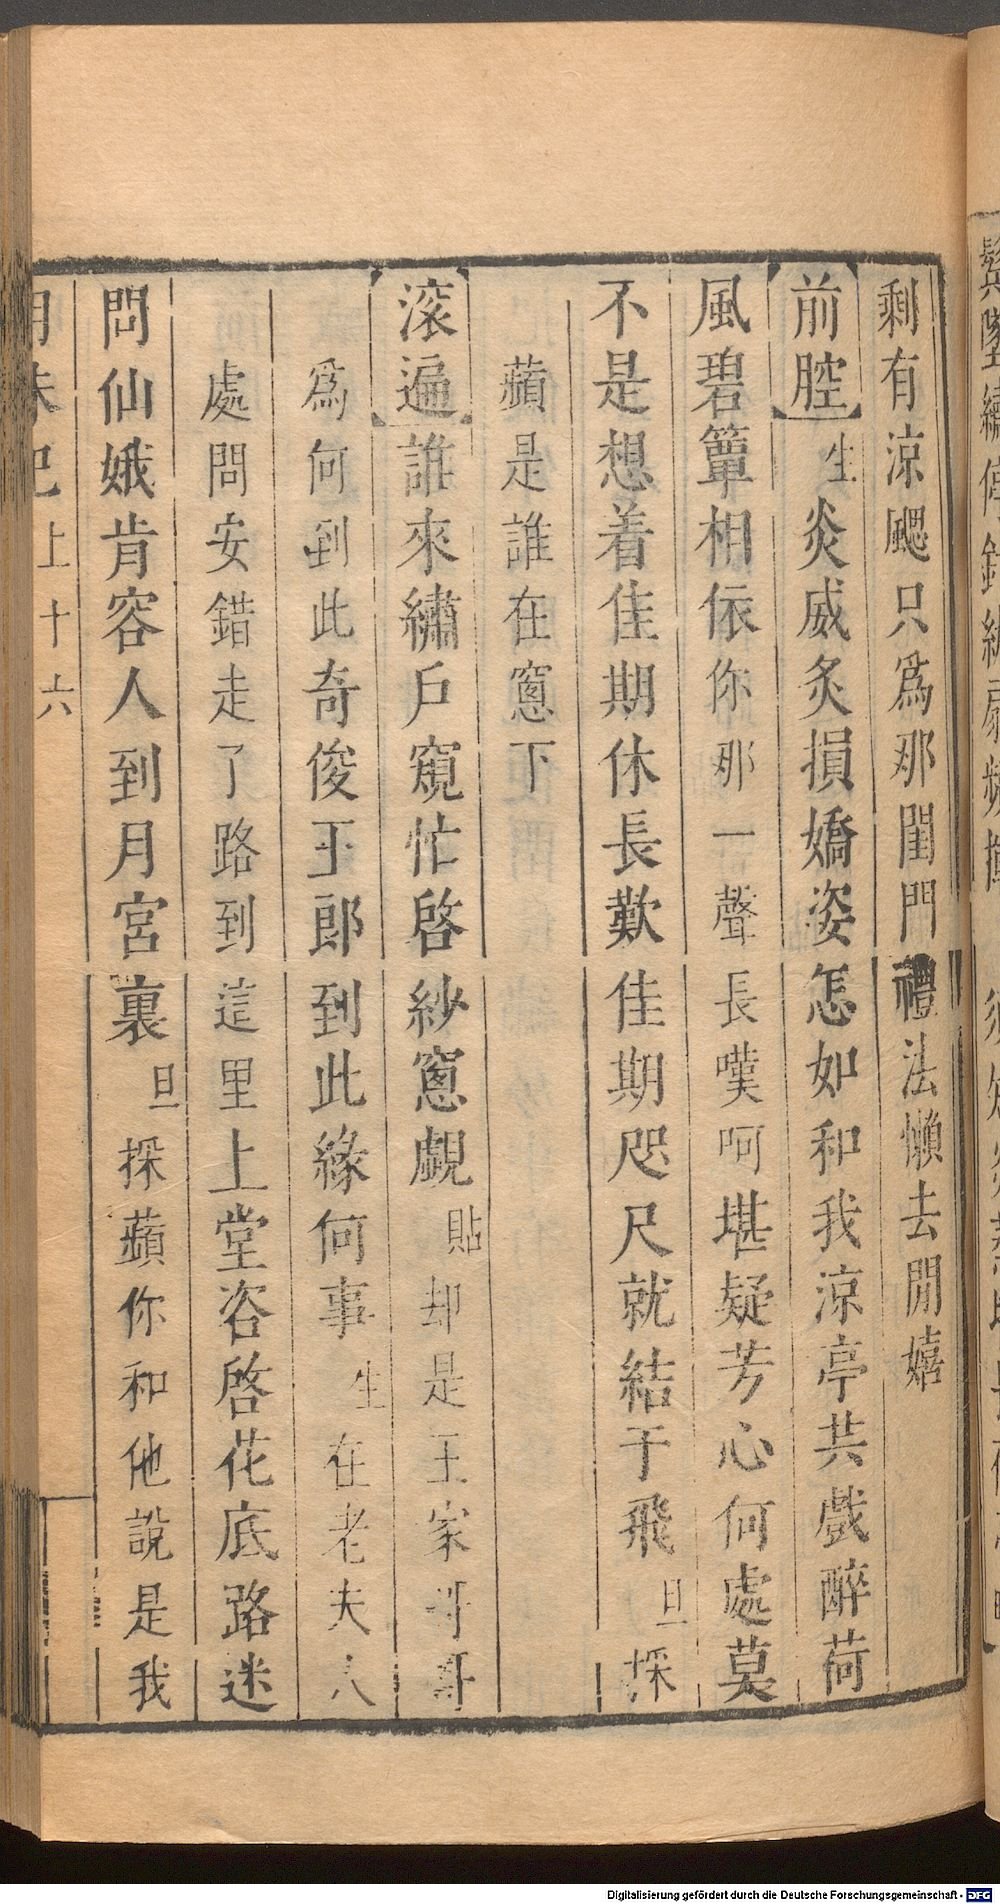 剩有涼颸只爲那閨門禮法懶去閒嬉
【前腔】生炎威炙損嬌姿怎如和我涼亭共戲醉荷
風碧簟相依你那一聲長嘆呵堪疑芳心何處莫
不是想着佳期休長歎佳期咫尺就結于飛旦採
蘋是誰在窻下
【滚遍】誰來繡戶窺忙啓紗窻覷貼却是王家哥哥
爲何到此奇俊王郎到此緣何事生在老夫人
處問安錯走了路到這里上堂咨啓花底路迷
問仙娥肯容人到月宮裏旦採蘋你和他說是我
上十六
Digitalisierung gefördert durch die Deutsche Forschungsgemeinschaft - DFG